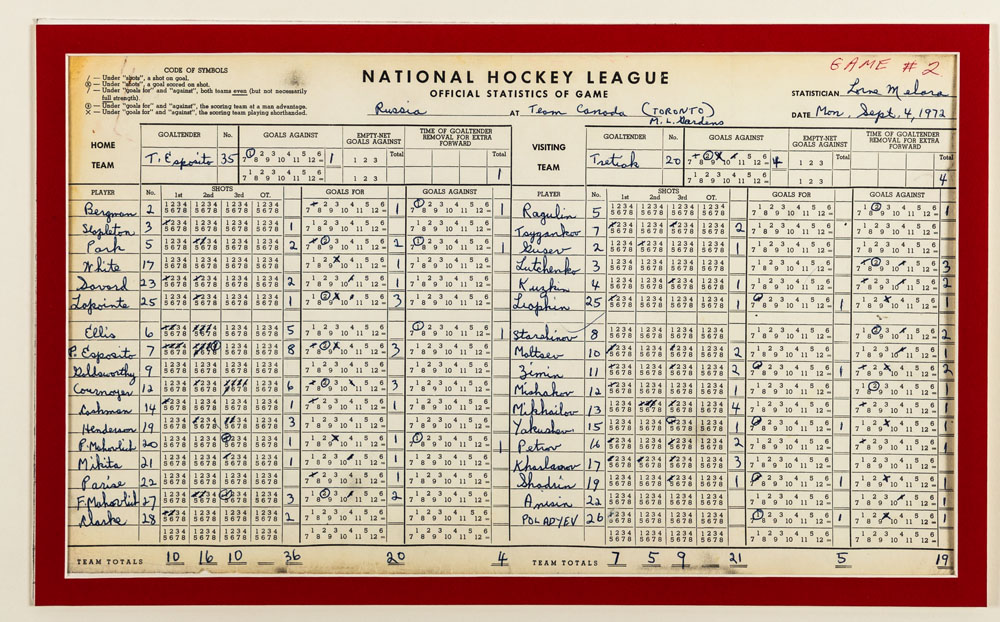 GAME #2
CODE OF SYMBOLS
/ — Under "shots", a shot on goal.
— Under "shots", a goal scored on shot.
/ — Under "goals for" and "against", both teams even (but not necessarily full strength).
— Under "goals for" and "against", the scoring team at a man advantage.
X — Under "goals for" and "against", the scoring team playing shorthanded.
NATIONAL HOCKEY LEAGUE
OFFICIAL STATISTICS OF GAME
Russia AT Team Canada (TORONTO)
M. L. Gardens
STATISTICIAN Lorne
DATE Mon, Sept. 4, 1972
HOME TEAM
GOALTENDER No. GOALS AGAINST EMPTY-NET GOALS AGAINST Total TIME OF GOALTENDER REMOVAL FOR EXTRA FORWARD Total
T. Esposito 35 1 1
VISITING TEAM
GOALTENDER No. GOALS AGAINST EMPTY-NET GOALS AGAINST Total TIME OF GOALTENDER REMOVAL FOR EXTRA FORWARD Total
Tretiak 20 4 4
PLAYER No. SHOTS 1st 2nd 3rd OT. GOALS FOR GOALS AGAINST
Bergman 2 1 1
Stapleton 3 1
Park 5 2 2 1
White 17 1
Savard 23 2 1
Lapointe 25 1 3
Ellis 6 5 1
P. Esposito 7 8 3
Goldsworthy 9
Cournoyer 12 6 3
Cashman 14 1 1
Henderson 19 3
P. Mahovlich 20 1 1 1
Mikita 21 1 1
Parise 22 1
F. Mahovlich 27 3 2
Clarke 28 2
TEAM TOTALS 10 16 10 36 20 4
PLAYER No. SHOTS 1st 2nd 3rd OT. GOALS FOR GOALS AGAINST
Ragulin 5 1
Tsygankov 7 2
Gusev 2 1
Lutchenko 3 3
Kuzkin 4 1 2
25 1 1 1
Starshinov 8 2
Maltsev 10 2
Zimin 11 2 1 2
Mishakov 12 1 1
Mikhailov 13 4 1
Yakushev 15 1 1 1
Petrov 16 2 1
Kharlamov 17 3 1
Shadrin 19 1 1 1
Anisin 22 1
POLADYEV 26 1 1
TEAM TOTALS 7 5 9 21 5 19